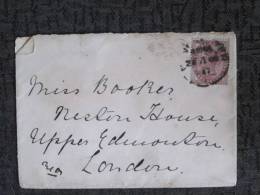 Miss Booker
Neston House,
Upper Edmonton,
London.